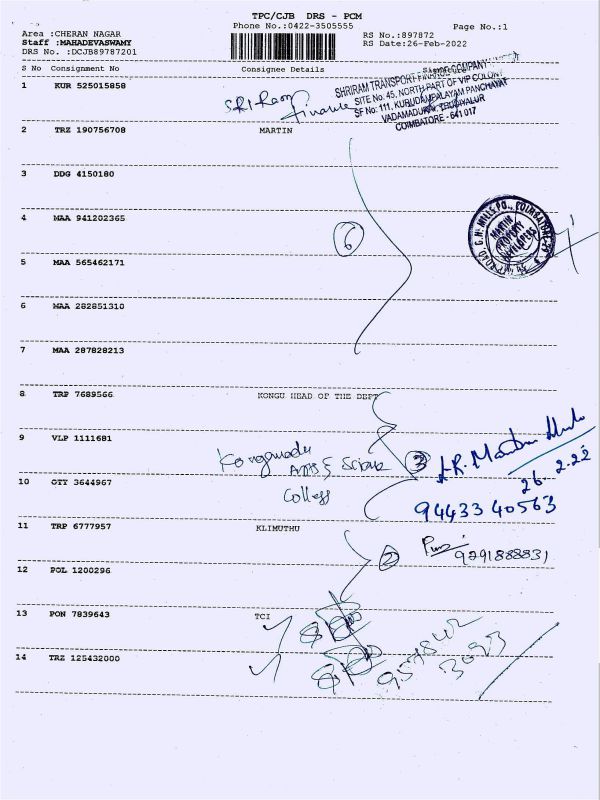 TPC/CJB DRS - PCM
Phone No.:0422-3505555
Page No.:1
Area :CHERAN NAGAR
RS No.:897872
Staff :MAHADEVASWAMY
RS Date:26-Feb-2022
DRS No. :DCJB89787201
S No Consignment No Consignee Details
1 KUR 525015858
SRI Ram Finance
SHRIRAM TRANSPORT FINANCE COMPANY
SITE No: 45, NORTH PART OF VIP COLONY
SF No: 111, KURUDAMPALAYAM PANCHAYAT
VADAMADURAI, THUDIYALUR
COIMBATORE - 641 017
2 TRZ 190756708 MARTIN
3 DDG 4150180
4 MAA 941202365
6
MARTIN PROPERTY DEVELOPERS
5 MAA 565462171
6 MAA 282851310
7 MAA 287828213
8 TRP 7689566 KONGU HEAD OF THE DEPT
9 VLP 1111681
Kongunadu Arts & Science College
3
26 2.22
10 GTT 3644967
9443340563
11 TRP 6777957 KLIMUTHU
2
9291888831
12 POL 1200296
13 PON 7839643 TCI
14 TRZ 125432000